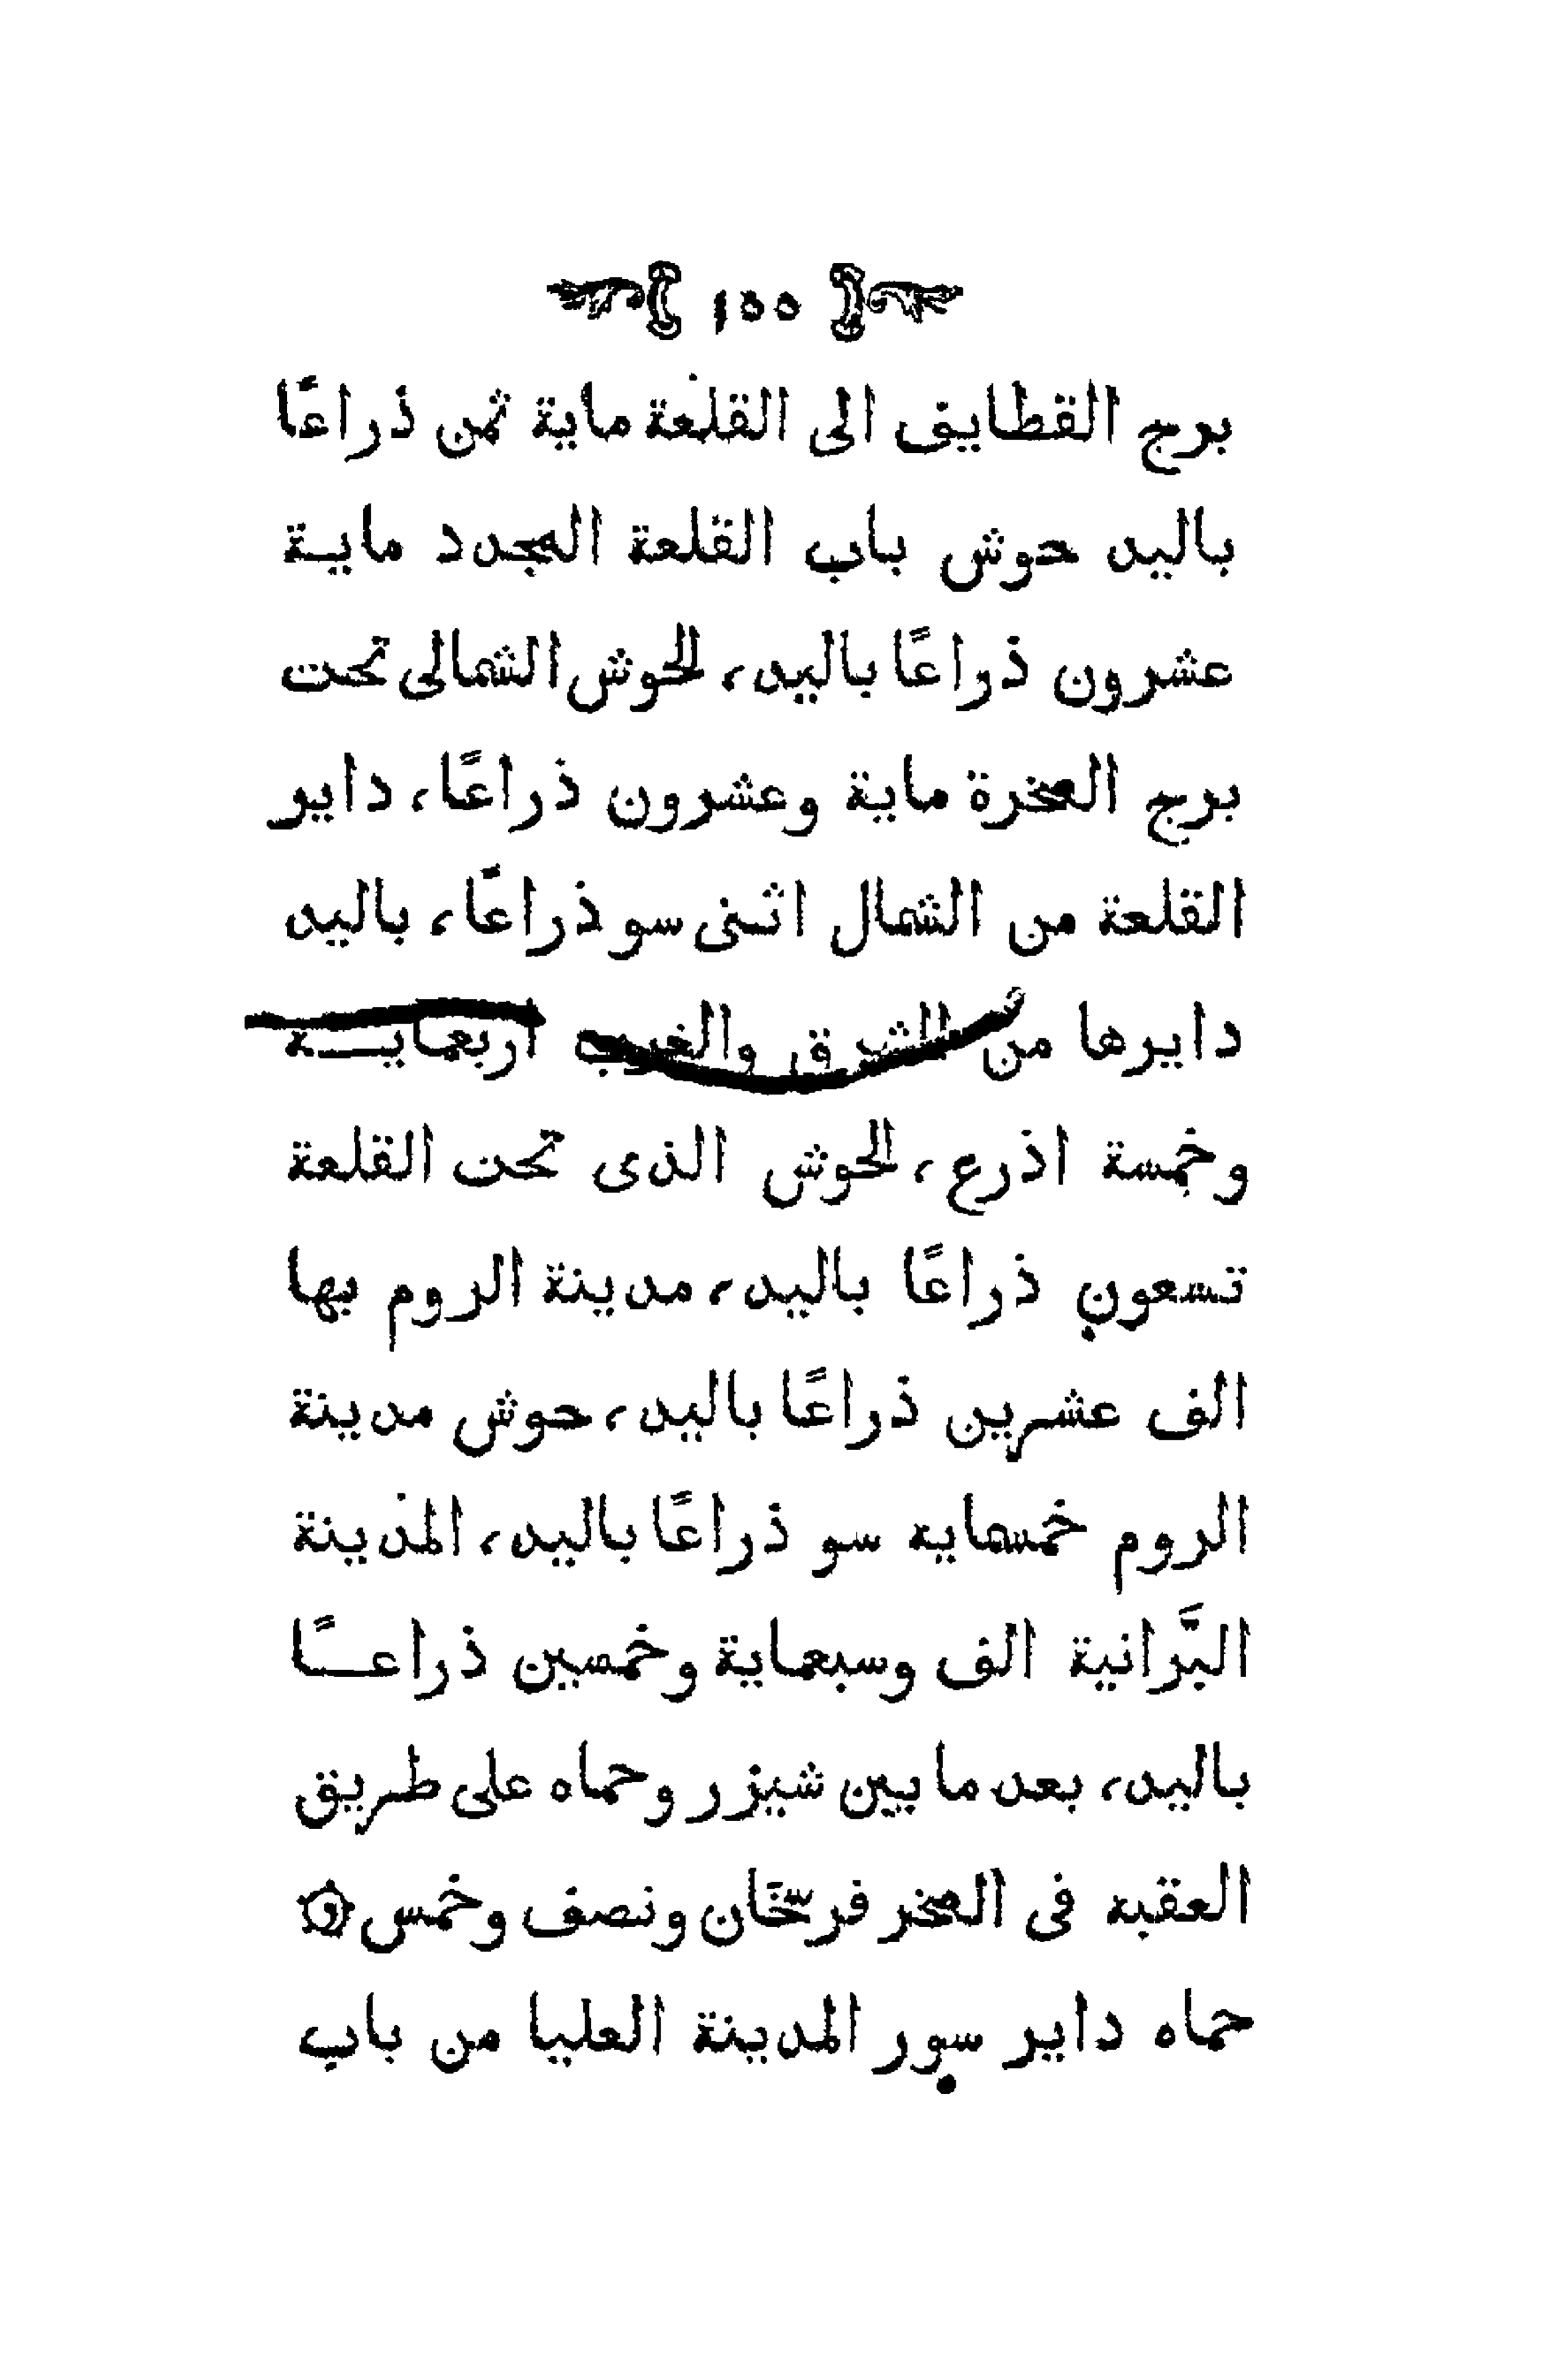 ١٥٥
برج القطايف الى القلعة ماية ثمن ذراعًا
باليد حوش باب القلعة المجدد مايـة
عشرون ذراعًا باليد، لحوش الشمالى تحت
برج الصخرة ماية وعشرون ذراعًا، داير
القلعة من الشمال اثنى سو ذراعًا، باليد
دايرها من الشرق والغرب اربعمايـــة
وخمسة اذرع، لحوش الذى تحت القلعة
تسعون ذراعًا باليد، مدينة الروم بها
الف عشرين ذراعًا باليد، حوش مدينة
الروم خمسمايه سو ذراعًا باليد، المدينة
البَّرانية الف وسبعماية وخمسين ذراعــًا
باليد، بعد ما بين شيزر وحماه على طريق
العقبه فى الصخر فرسخان ونصف وخمس ۞
حماه داير سور المدينة العليا من باب